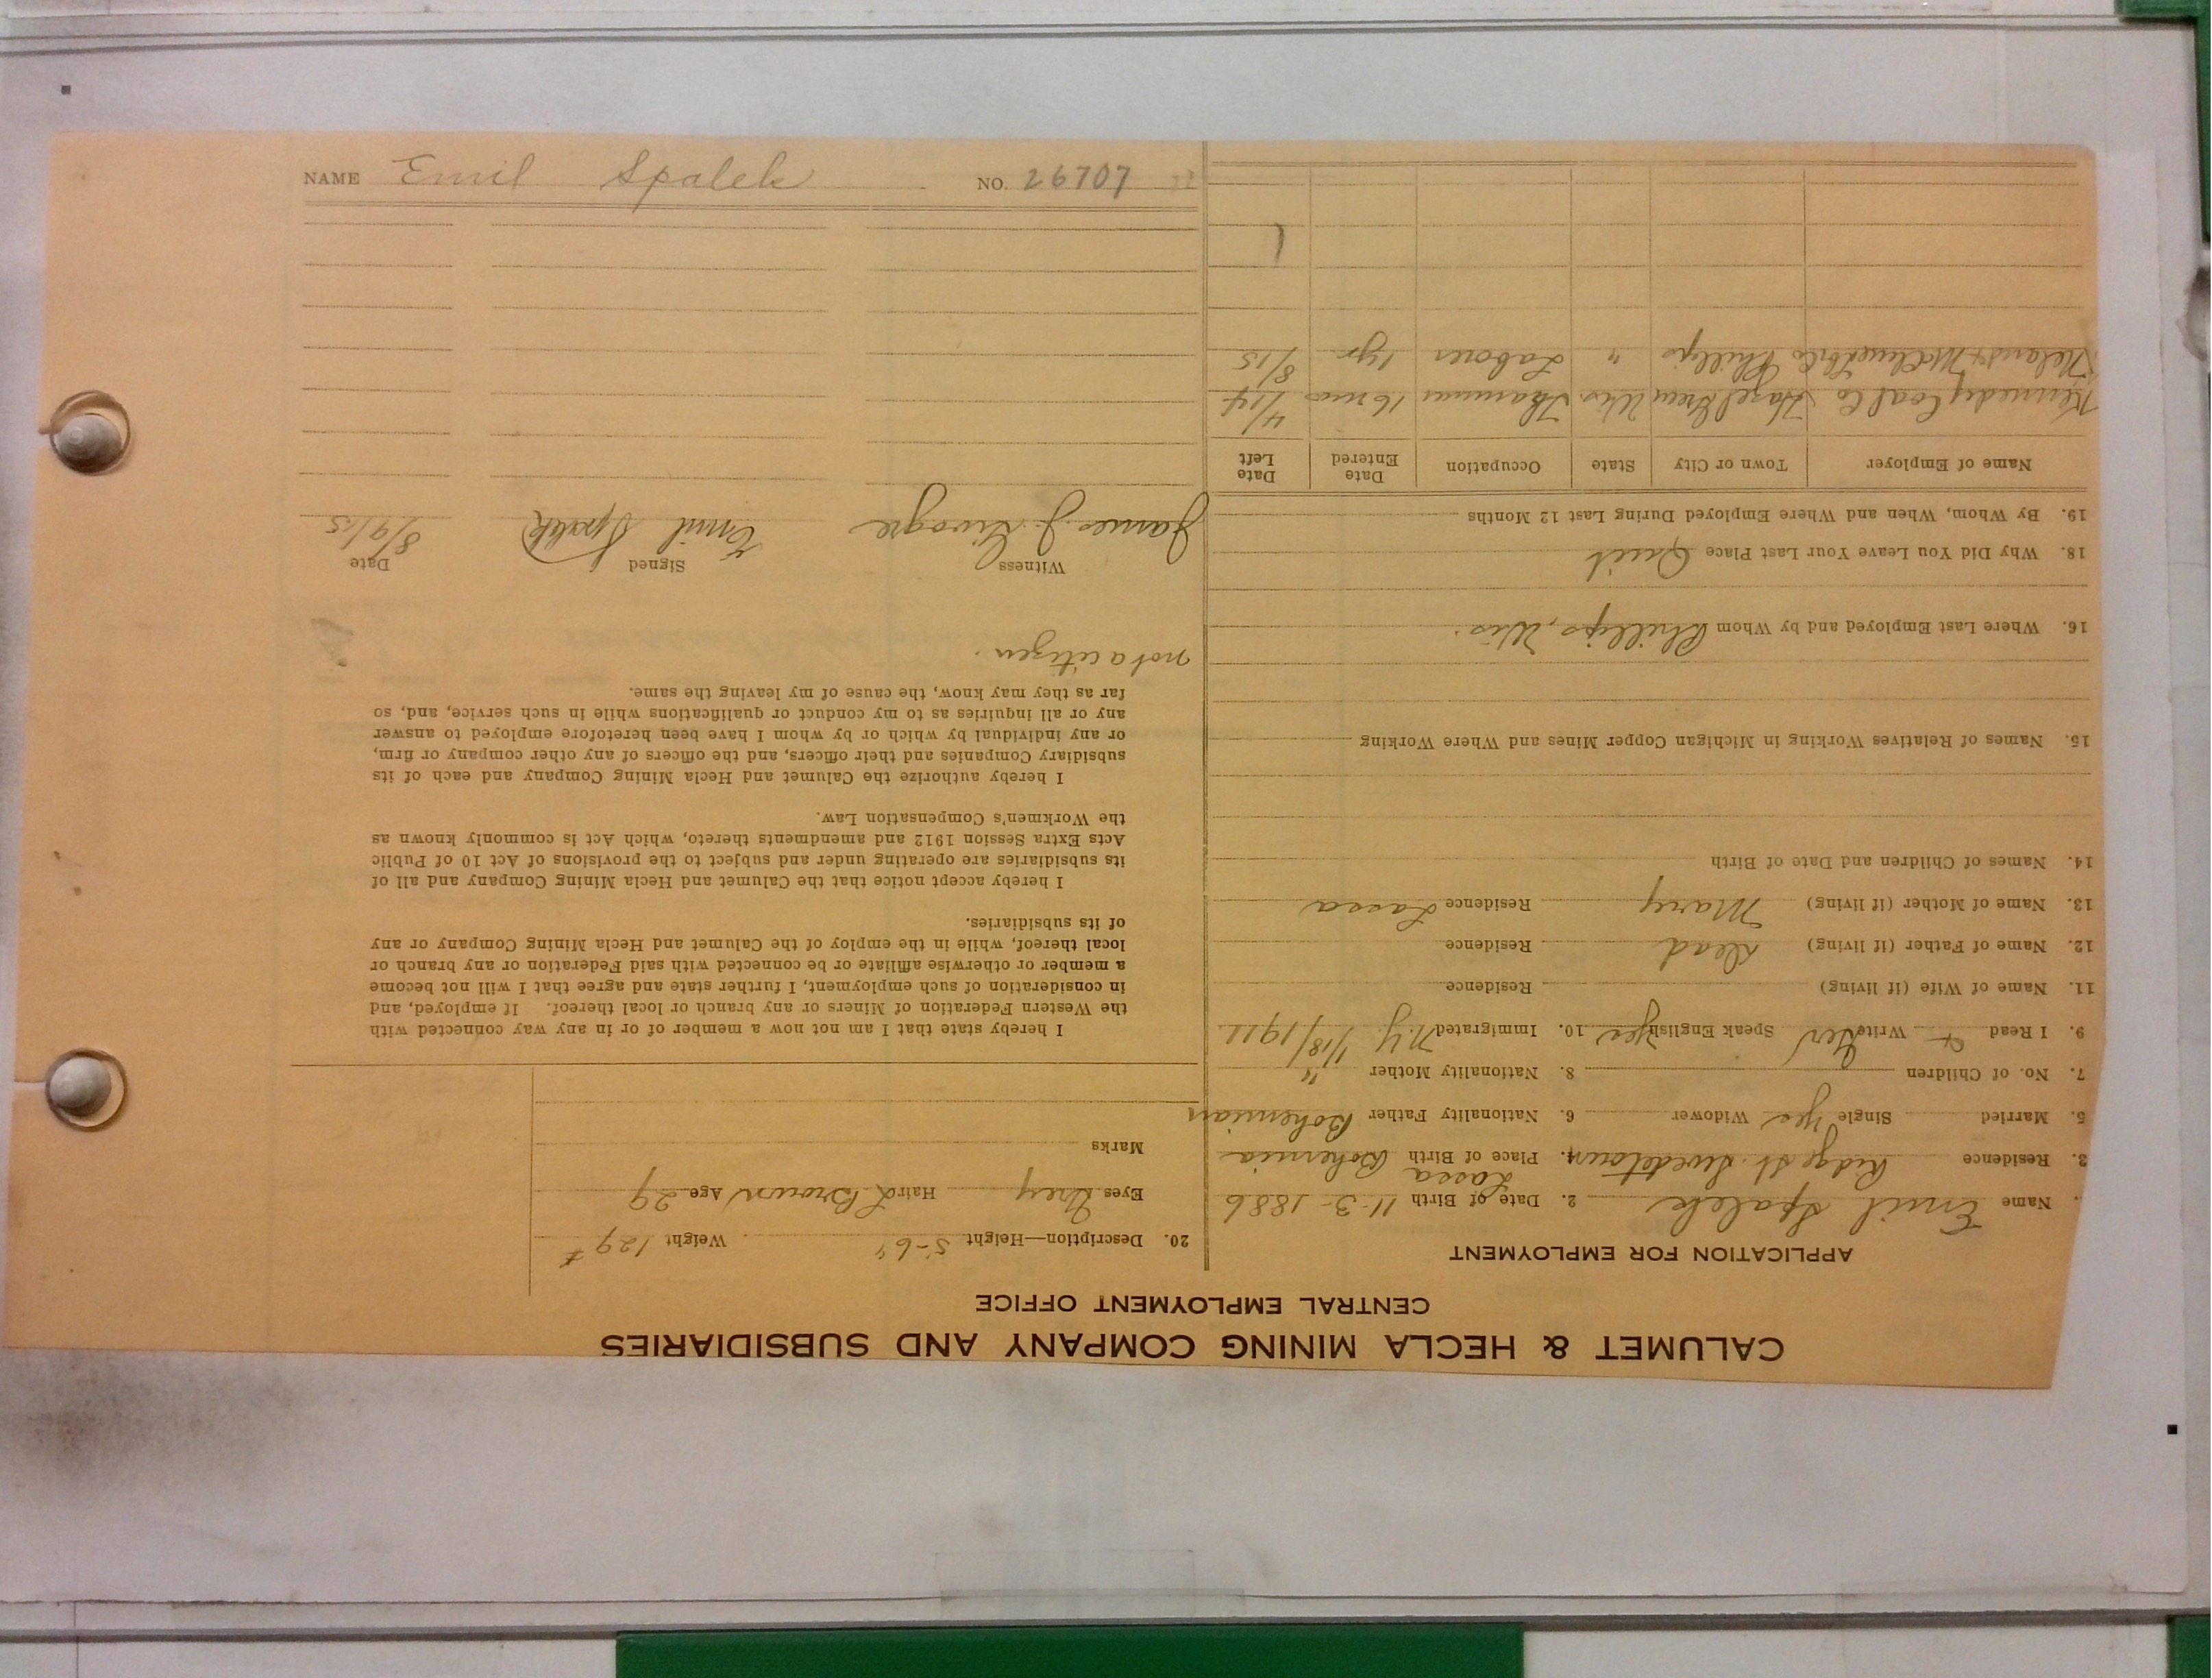 NAME Emil Spalek NO. 26707
CALUMET & HECLA MINING COMPANY AND SUBSIDIARIES
CENTRAL EMPLOYMENT OFFICE
APPLICATION FOR EMPLOYMENT
1. Name Emil Spalek 2. Date of Birth 11-3-1886
3. Residence Ridge St. Swedetown 4. Place of Birth Lassa Bohemia
5. Married Single Yes Widower 6. Nationality Father Bohemian
7. No. of Children 8. Nationality Mother "
9. I Read & Write Ger Speak English Yes 10. Immigrated N.Y. 1/18/1911
11. Name of Wife (if living) Residence
12. Name of Father (if living) Dead Residence
13. Name of Mother (if living) Mary Residence Lassa
14. Names of Children and Date of Birth
15. Names of Relatives Working in Michigan Copper Mines and Where Working
16. Where Last Employed and by Whom Phillips, Wis.
18. Why Did You Leave Your Last Place Quit
19. By Whom, When and Where Employed During Last 12 Months
Name of Employer Town or City State Occupation Date Entered Date Left
Kennedy Coal Co Wis 16 mos 4/14
Phillips " Laborer 1 yr 8/15
20. Description—Height 5-6" Weight 129#
Eyes Grey Hair L Brown Age 29
Marks
I hereby state that I am not now a member of or in any way connected with
the Western Federation of Miners or any branch or local thereof. If employed, and
in consideration of such employment, I further state and agree that I will not become
a member or otherwise affiliate or be connected with said Federation or any branch or
local thereof, while in the employ of the Calumet and Hecla Mining Company or any
of its subsidiaries.
I hereby accept notice that the Calumet and Hecla Mining Company and all of
its subsidiaries are operating under and subject to the provisions of Act 10 of Public
Acts Extra Session 1912 and amendments thereto, which Act is commonly known as
the Workmen's Compensation Law.
I hereby authorize the Calumet and Hecla Mining Company and each of its
subsidiary Companies and their officers, and the officers of any other company or firm,
or any individual by which or by whom I have been heretofore employed to answer
any or all inquiries as to my conduct or qualifications while in such service, and, so
far as they may know, the cause of my leaving the same.
not a citizen.
Witness Signed Date
James J. Emil Spalek 8/9/15